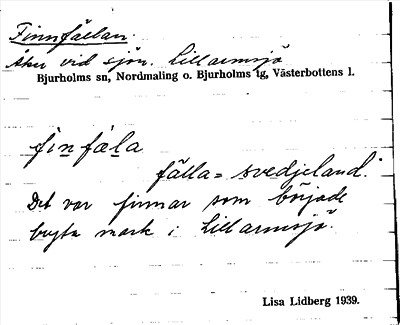 Finnfällan.
Åker vid sjön. Lillarmsjö
Bjurholms sn, Nordmaling o. Bjurholms tg, Västerbottens l.
finfäla
fälla = svedjeland.
Det var finnar som började
bryta mark i Lillarmsjö.
Lisa Lidberg 1939.